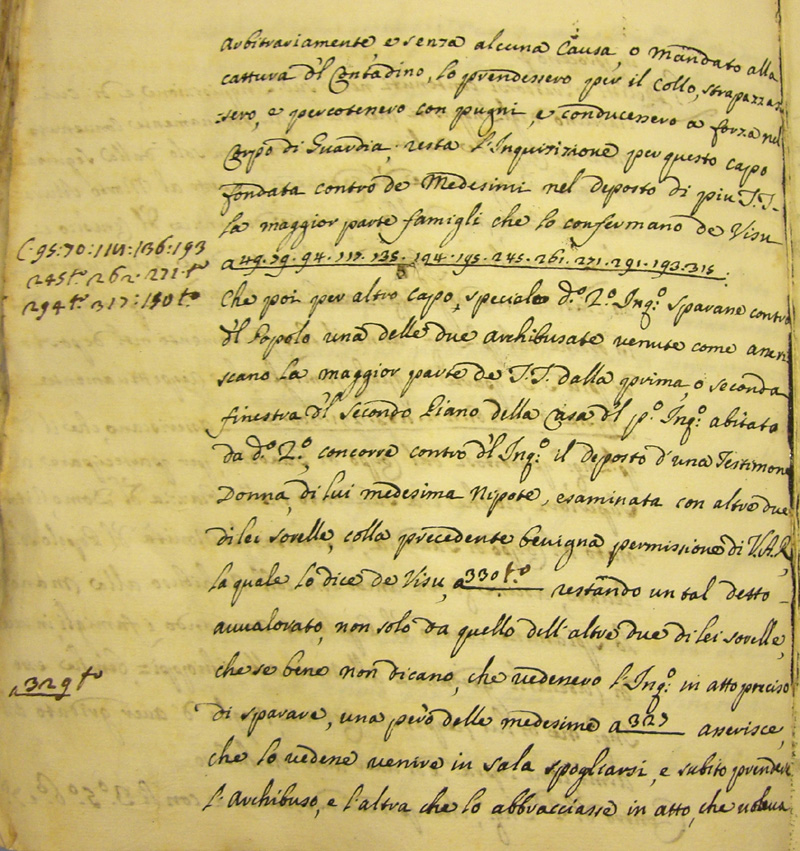 Arbitrariamente, e senza alcuna Causa, o mandato alla
cattura d'l Contadino, lo prendessero per il Collo, strapazzas
sero, e percotessero con pugni, e conducessero a forza nel
Corpo di Guardia, resta l'Inquisizione per questo capo
fondata contro de Medesimi nel deposto di piu T.T.
la maggior parte famigli che lo confermano de Visu
C. 95: 70: 114: 136: 193
245 to. 262. 271 to
294 to. 317: 180 to.
a 49. 79. 94. 117. 135. 194. 195. 245. 261. 271. 291. 193. 315.
Che poi per altro capo, speciale d.o 2.o Inq.o sparasse contro
d'l Popolo una delle due archibusate venute come asseri
scano la maggior parte de T.T. dalla prima, o seconda
finestra d'l secondo Piano della Casa d'l p.o Inq.o abitato
da d.o 2.o, concorre contro d'l Inq.o il deposto d'una Testimone
Donna, di lui medesima Nipote, esaminata con altre due
di lei sorelle, colla precedente benigna permissione di V.A.R.
la quale lo dice de Visu, a 330 t.o restando un tal detto
avvalorato, non solo da quello dell'altre due di lei sorelle,
che se bene non dicano, che vedessero l'Inq.o in atto preciso
a 329 to
di sparare, una però delle medesime a 327 asserisce,
che lo vedesse venire in sala spogliarsi, e subito prendere
l'Archibuso, e l'altra che lo abbracciasse in atto, che voleva